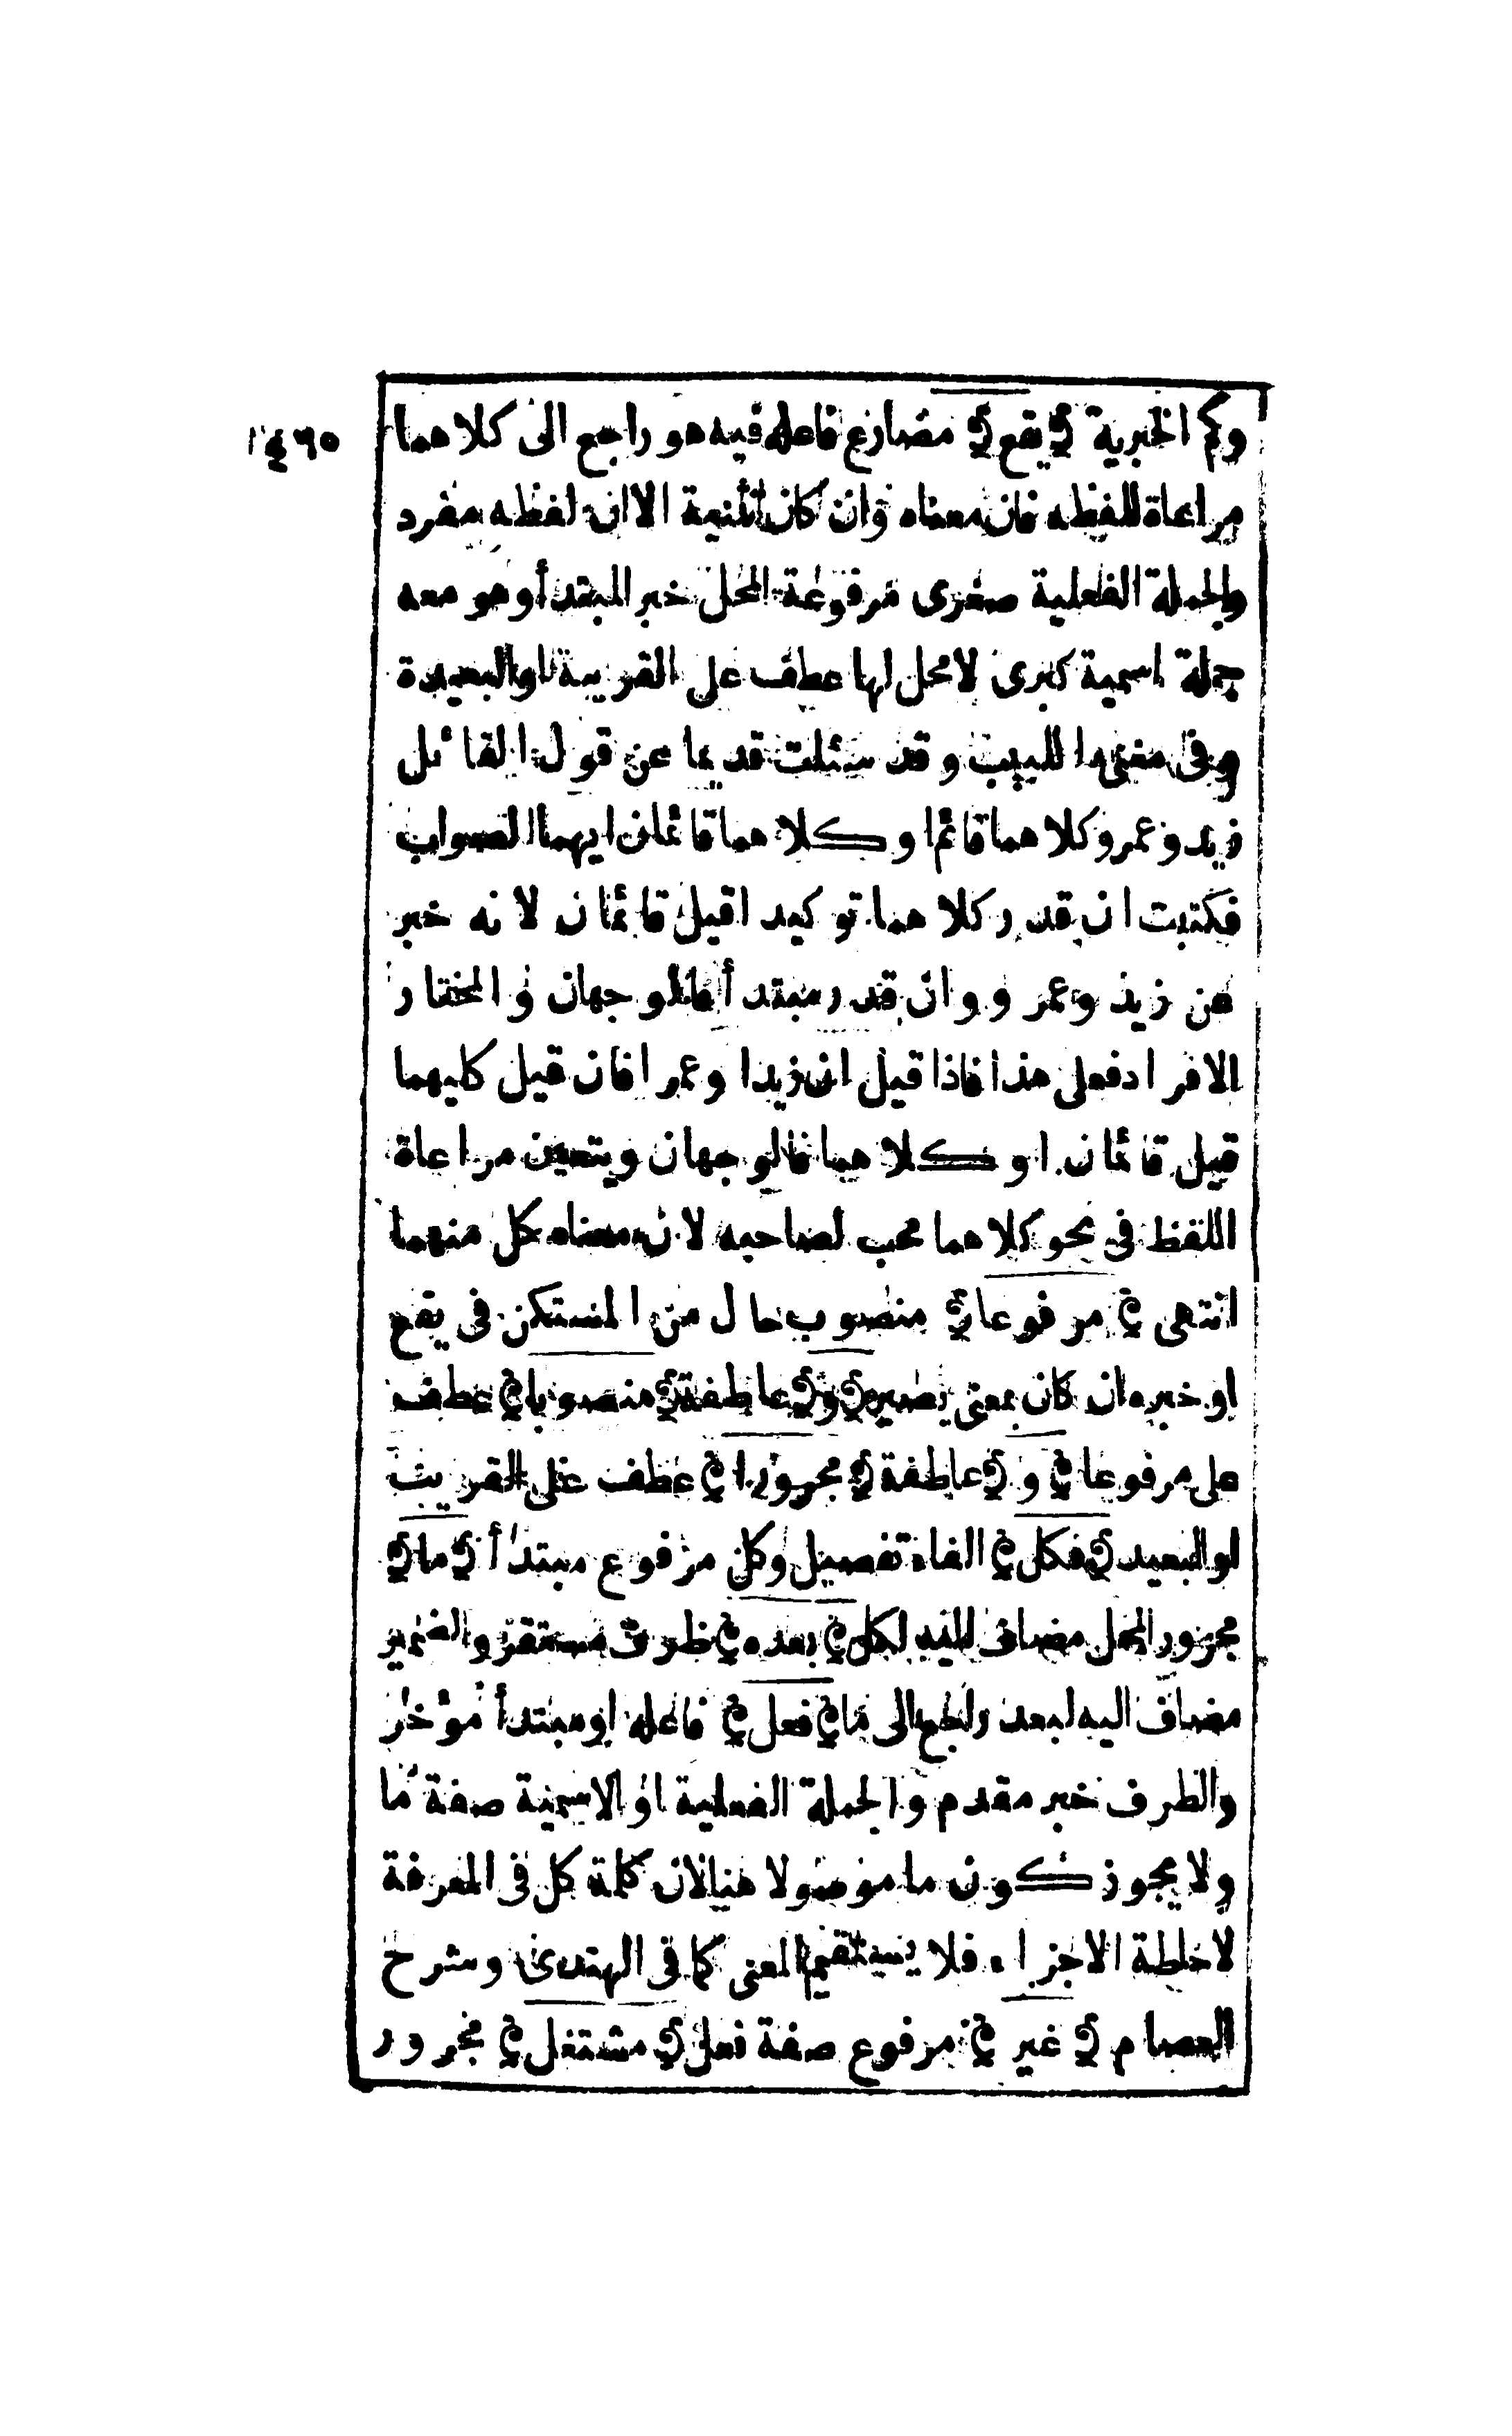 وكم الخبرية ﴾ يقع ﴿ مضارع فاعله فيه هو راجع الى كلاهما
١٤٦٥
مراعاة للفظه فان معناه وان كان تثنية الا ان لفظه مفرد
والجملة الفعلية صغرى مرفوعة المحل خبر المبتدأ وهو معه
جملة اسمية كبرى لا محل لها عطف على القريبة او البعيدة
وفى مغنى اللبيب وقد سئلت قديما عن قول القائل
زيد وعمرو كلاهما قائم او كلاهما قائمان ايهما الصواب
فكتبت ان قدر كلاهما توكيدا قيل قائمان لانه خبر
عن زيد وعمرو وان قدر مبتدأ فالوجهان والمختار
الافراد فعلى هذا فاذا قيل ان زيدا وعمرا فان قيل كليهما
قيل قائمان او كلاهما فالوجهان ويتعين مراعاة
اللفظ فى نحو كلاهما محب لصاحبه لان معناه كل منهما
انتهى ﴿ مرفوعا ﴾ منصوب حال من المستكن فى يقع
او خبره ان كان بمعنى يصير ﴿ و ﴾ عاطفة ﴿ منصوبا ﴾ عطف
على مرفوعا ﴿ و ﴾ عاطفة ﴿ مجرورا ﴾ عطف على القريب
او البعيد ﴿ فكل ﴾ الفاء تفصيل وكل مرفوع مبتدأ ﴿ ما ﴾
مجرور المحل مضاف اليه لكل ﴿ بعده ﴾ ظرف مستقر والضمير
مضاف اليه لبعد راجع الى ما ﴿ فعل ﴾ فاعله او مبتدأ مؤخر
والظرف خبر مقدم والجملة الفعلية او الاسمية صفة ما
ولا يجوز كون ما موصولا هنا لان كلمة كل فى المعرفة
لاحاطة الاجزاء فلا يستقيم المعنى كما فى الهندى وشرح
العصام ﴿ غير ﴾ مرفوع صفة فعل ﴿ مشتغل ﴾ مجرور